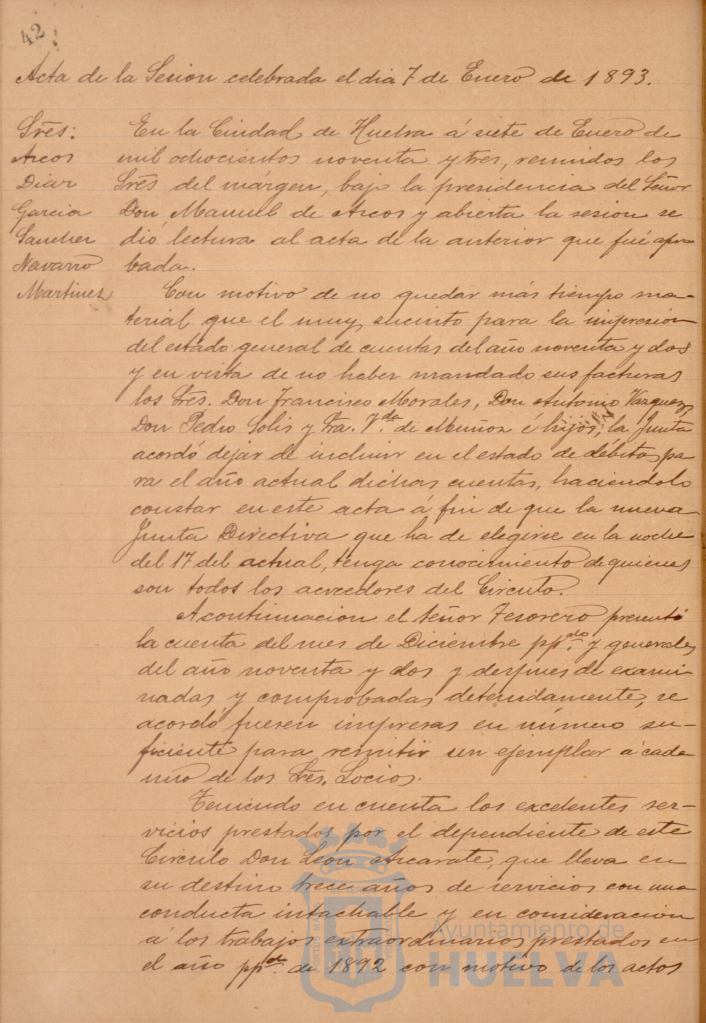 42
Acta de la Sesion celebrada el dia 7 de Enero de 1893.
Sres:
Arcos
Diaz
Garcia
Sanchez
Navarro
Martinez
En la Ciudad de Huelva á siete de Enero de
mil ochocientos noventa y tres, reunidos los
Sres del márgen, bajo la presidencia del Señor
Don Manuel de Arcos y abierta la sesion se
dió lectura al acta de la anterior que fué apro
bada.
Con motivo de no quedar más tiempo ma-
terial que el muy sucinto para la impresion
del estado general de cuentas del año noventa y dos
y en vista de no haber mandado sus facturas
los Sres. Don Francisco Morales, Don Antonio Vazquez,
Don Pedro Solis y Sra. Vda de Muñoz é hijos, la Junta
acordó dejar de incluir en el estado de débitos pa
ra el año actual dichas cuentas, haciendolo
constar en este acta á fin de que la nueva
Junta Directiva que ha de elegirse en la noche
del 17 del actual, tenga conocimiento de quienes
son todos los acreedores del Circulo.
A continuacion el Señor Tesorero presentó
la cuenta del mes de Diciembre ppdo. y generales
del año noventa y dos y despues de exami
nadas y comprobadas detenidamente, se
acordó fuesen impresas en número su-
ficiente para remitir un ejemplar á cada
uno de los Sres. Socios.
Teniendo en cuenta los excelentes ser-
vicios prestados por el dependiente de este
Circulo Don León Azcarate, que lleva en
su destino trece años de servicios con una
conducta intachable y en consideracion
á los trabajos extraordinarios prestados en
el año ppdo. de 1892 con motivo de los actos
Ayuntamiento de
HUELVA